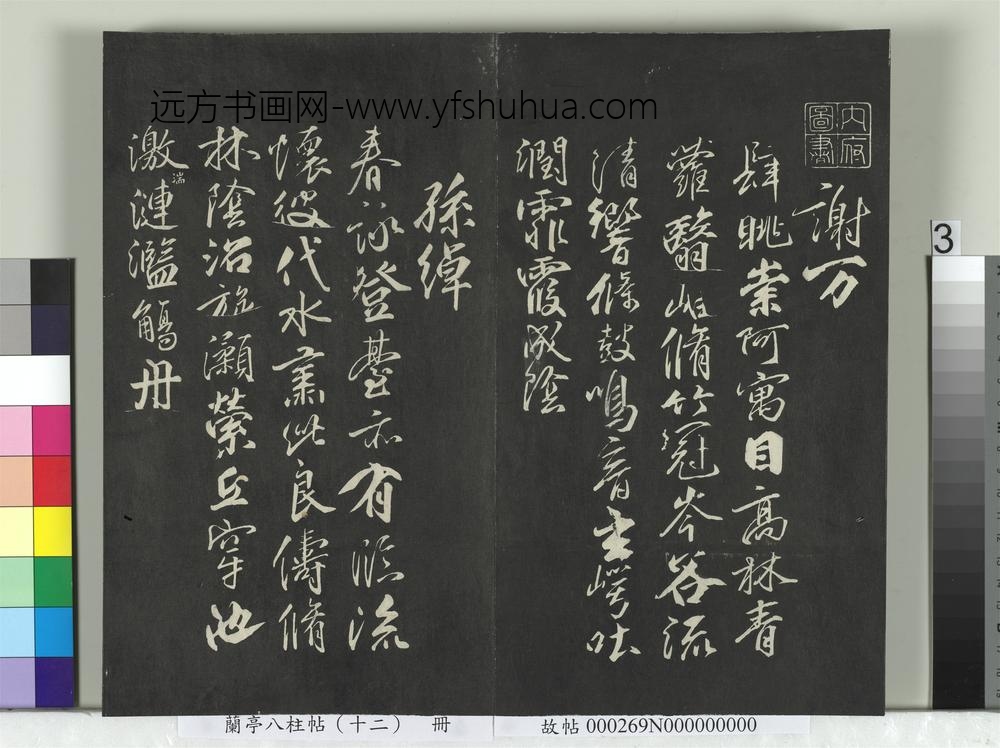 远方书画网-www.yfshuhua.com
內府圖書
謝万
肆眺崇阿寓目高林青
蘿翳岫脩竹冠岑谷流
清響條鼓鳴音玄崿吐
潤霏霞成陰
孫綽
春詠登臺亦有臨流
懷彼代水肅此良儔脩
林陰沼旋瀨縈丘穿池
激湍漣濫觴舟
3
蘭亭八柱帖（十二） 冊
故帖 000269N000000000